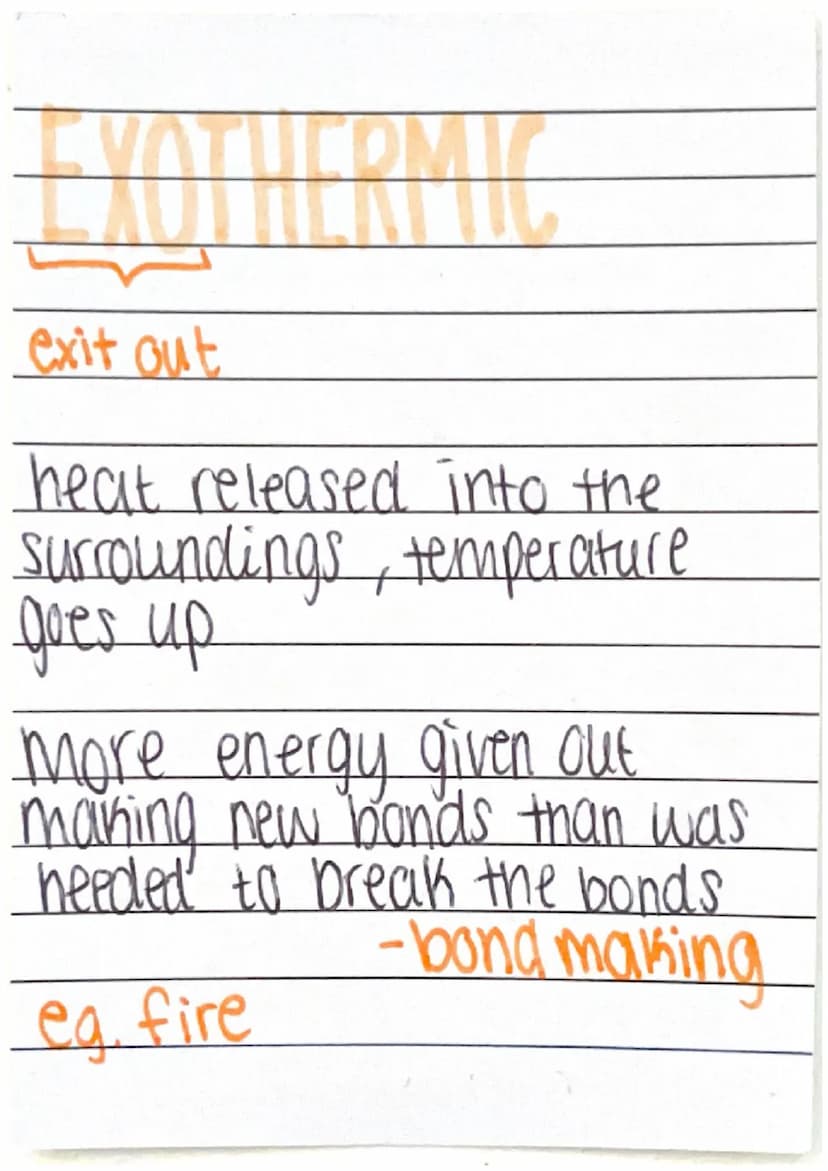 EXOTHERMIC
exit out
heat released into the
surroundings, temperature
goes up
more energy given out
making new bonds than was
needed to break the bonds
-bond making
eg. fire